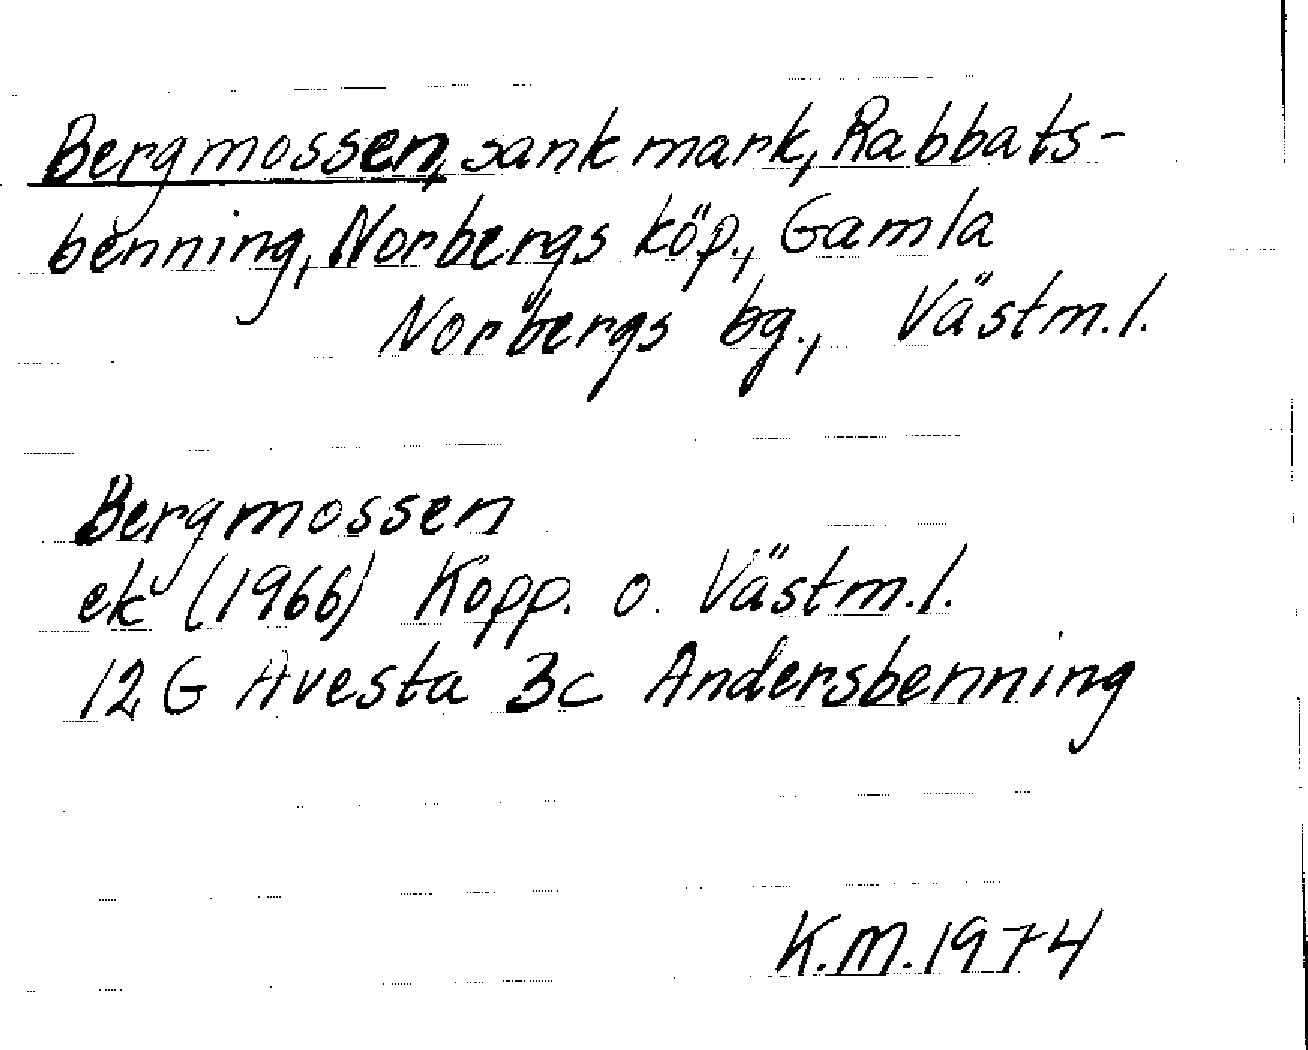 Bergmossen, sank mark, Rabbats-
benning, Norbergs köp., Gamla
Norbergs bg., Västm.l.
Bergmossen
ek (1966) Kopp. o. Västm.l.
12G Avesta 3c Andersbenning
K.M.1974